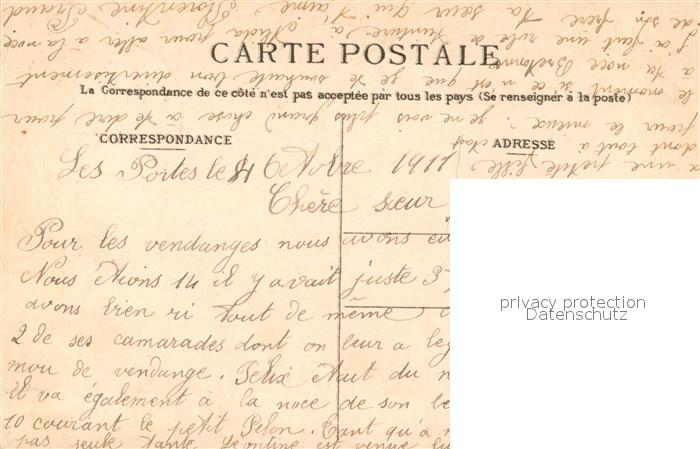 CARTE POSTALE
La Correspondance de ce côté n'est pas acceptée par tous les pays (Se renseigner à la poste)
CORRESPONDANCE
ADRESSE
Les Portes le 4 1911
Chère sœur
Pour les vendanges nous avons
Nous étions 14 il y avait juste
avons bien ri tout de même
2 de ses camarades dont on leur a
mou de vendange. Félix était du
il va également à la noce de son
10 courant le petit Pelon. Tant qu'à
pas seule tante Léontine est venue
à une petite fille
dont tout à
pour le mieux. je ne vois plus grand chose à te dire pour
le moment si ce n'est que je te souhaite bon divertissement
à ta noce Bretonne
J'ai fait une robe de à Alida pour aller à la noce
de son frère Ta sœur qui t'aime Florentine
privacy protection
Datenschutz